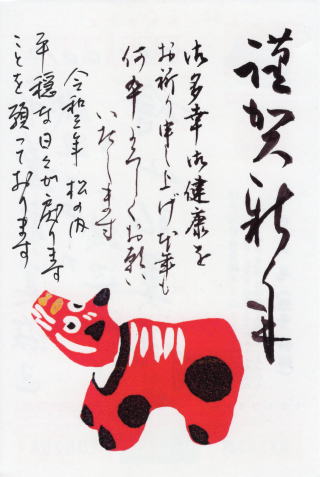 謹賀新年
御多幸御健康を
お祈り申し上げ本年も
何卒よろしくお願い
いたします
令和三年 松の内
平穏な日々が戻ります
ことを願っております